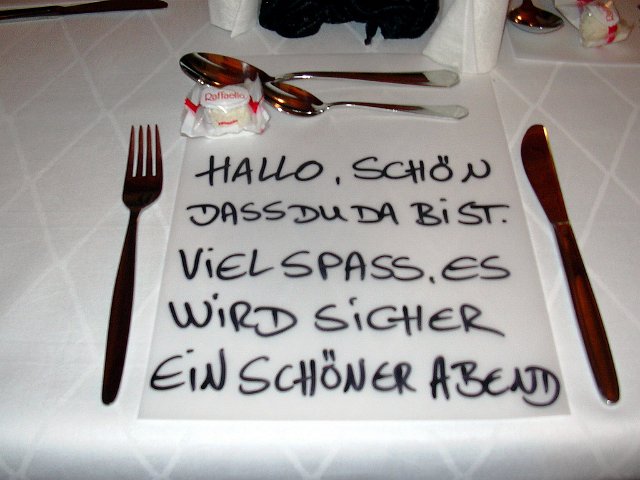 Raffaello
HALLO, SCHÖN
DASS DU DA BIST.
VIEL SPASS. ES
WIRD SICHER
EIN SCHÖNER ABEND